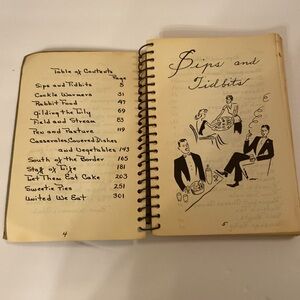 Table of Contents
Page
Sips and Tidbits 5
Cookie Warmers 31
Rabbit Food 47
Gilding the Lily 69
Field and Stream 83
Pen and Pasture 119
Casseroles, Covered Dishes
and Vegetables 143
South of the Border 165
Staf of Life 181
Let Them Eat Cake 203
Sweetie Pies 251
United We Eat 301
4
Sips and
Tidbits
5